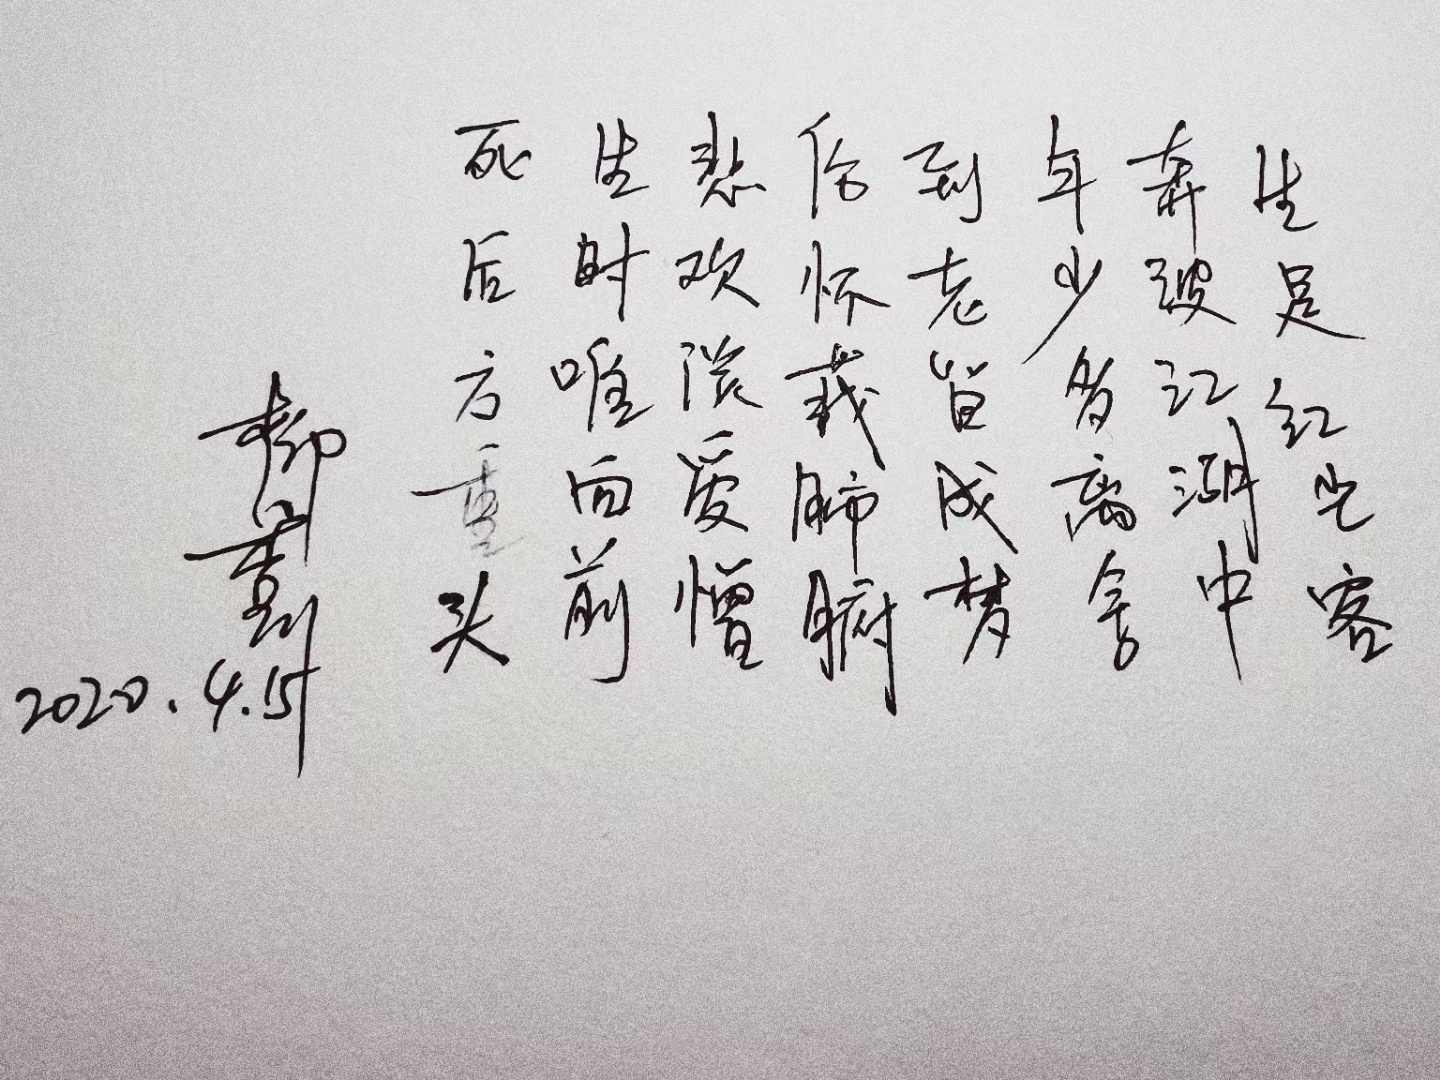 生是红尘客
奔波江湖中
年少多离
到老皆成梦
伤怀藏肺腑
悲欢淡爱憎
生时唯向前
死后方重头
2020.4.15